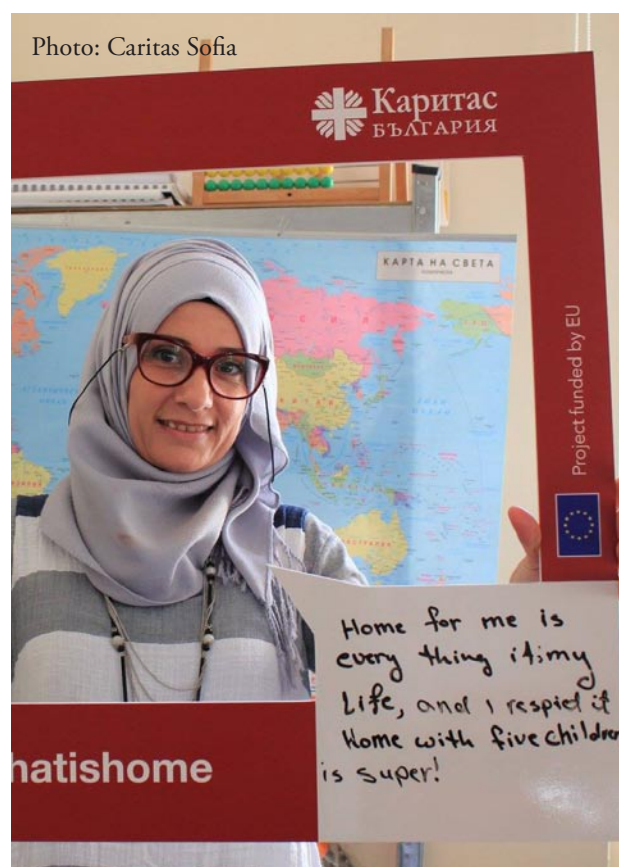 Photo: Caritas Sofia
Каритас
БЪЛГАРИЯ
КАРТА НА СВЕТА
Project funded by EU
Home for me is
every thing it;my
Life, and I respied it
Home with five children
is super!
hatishome